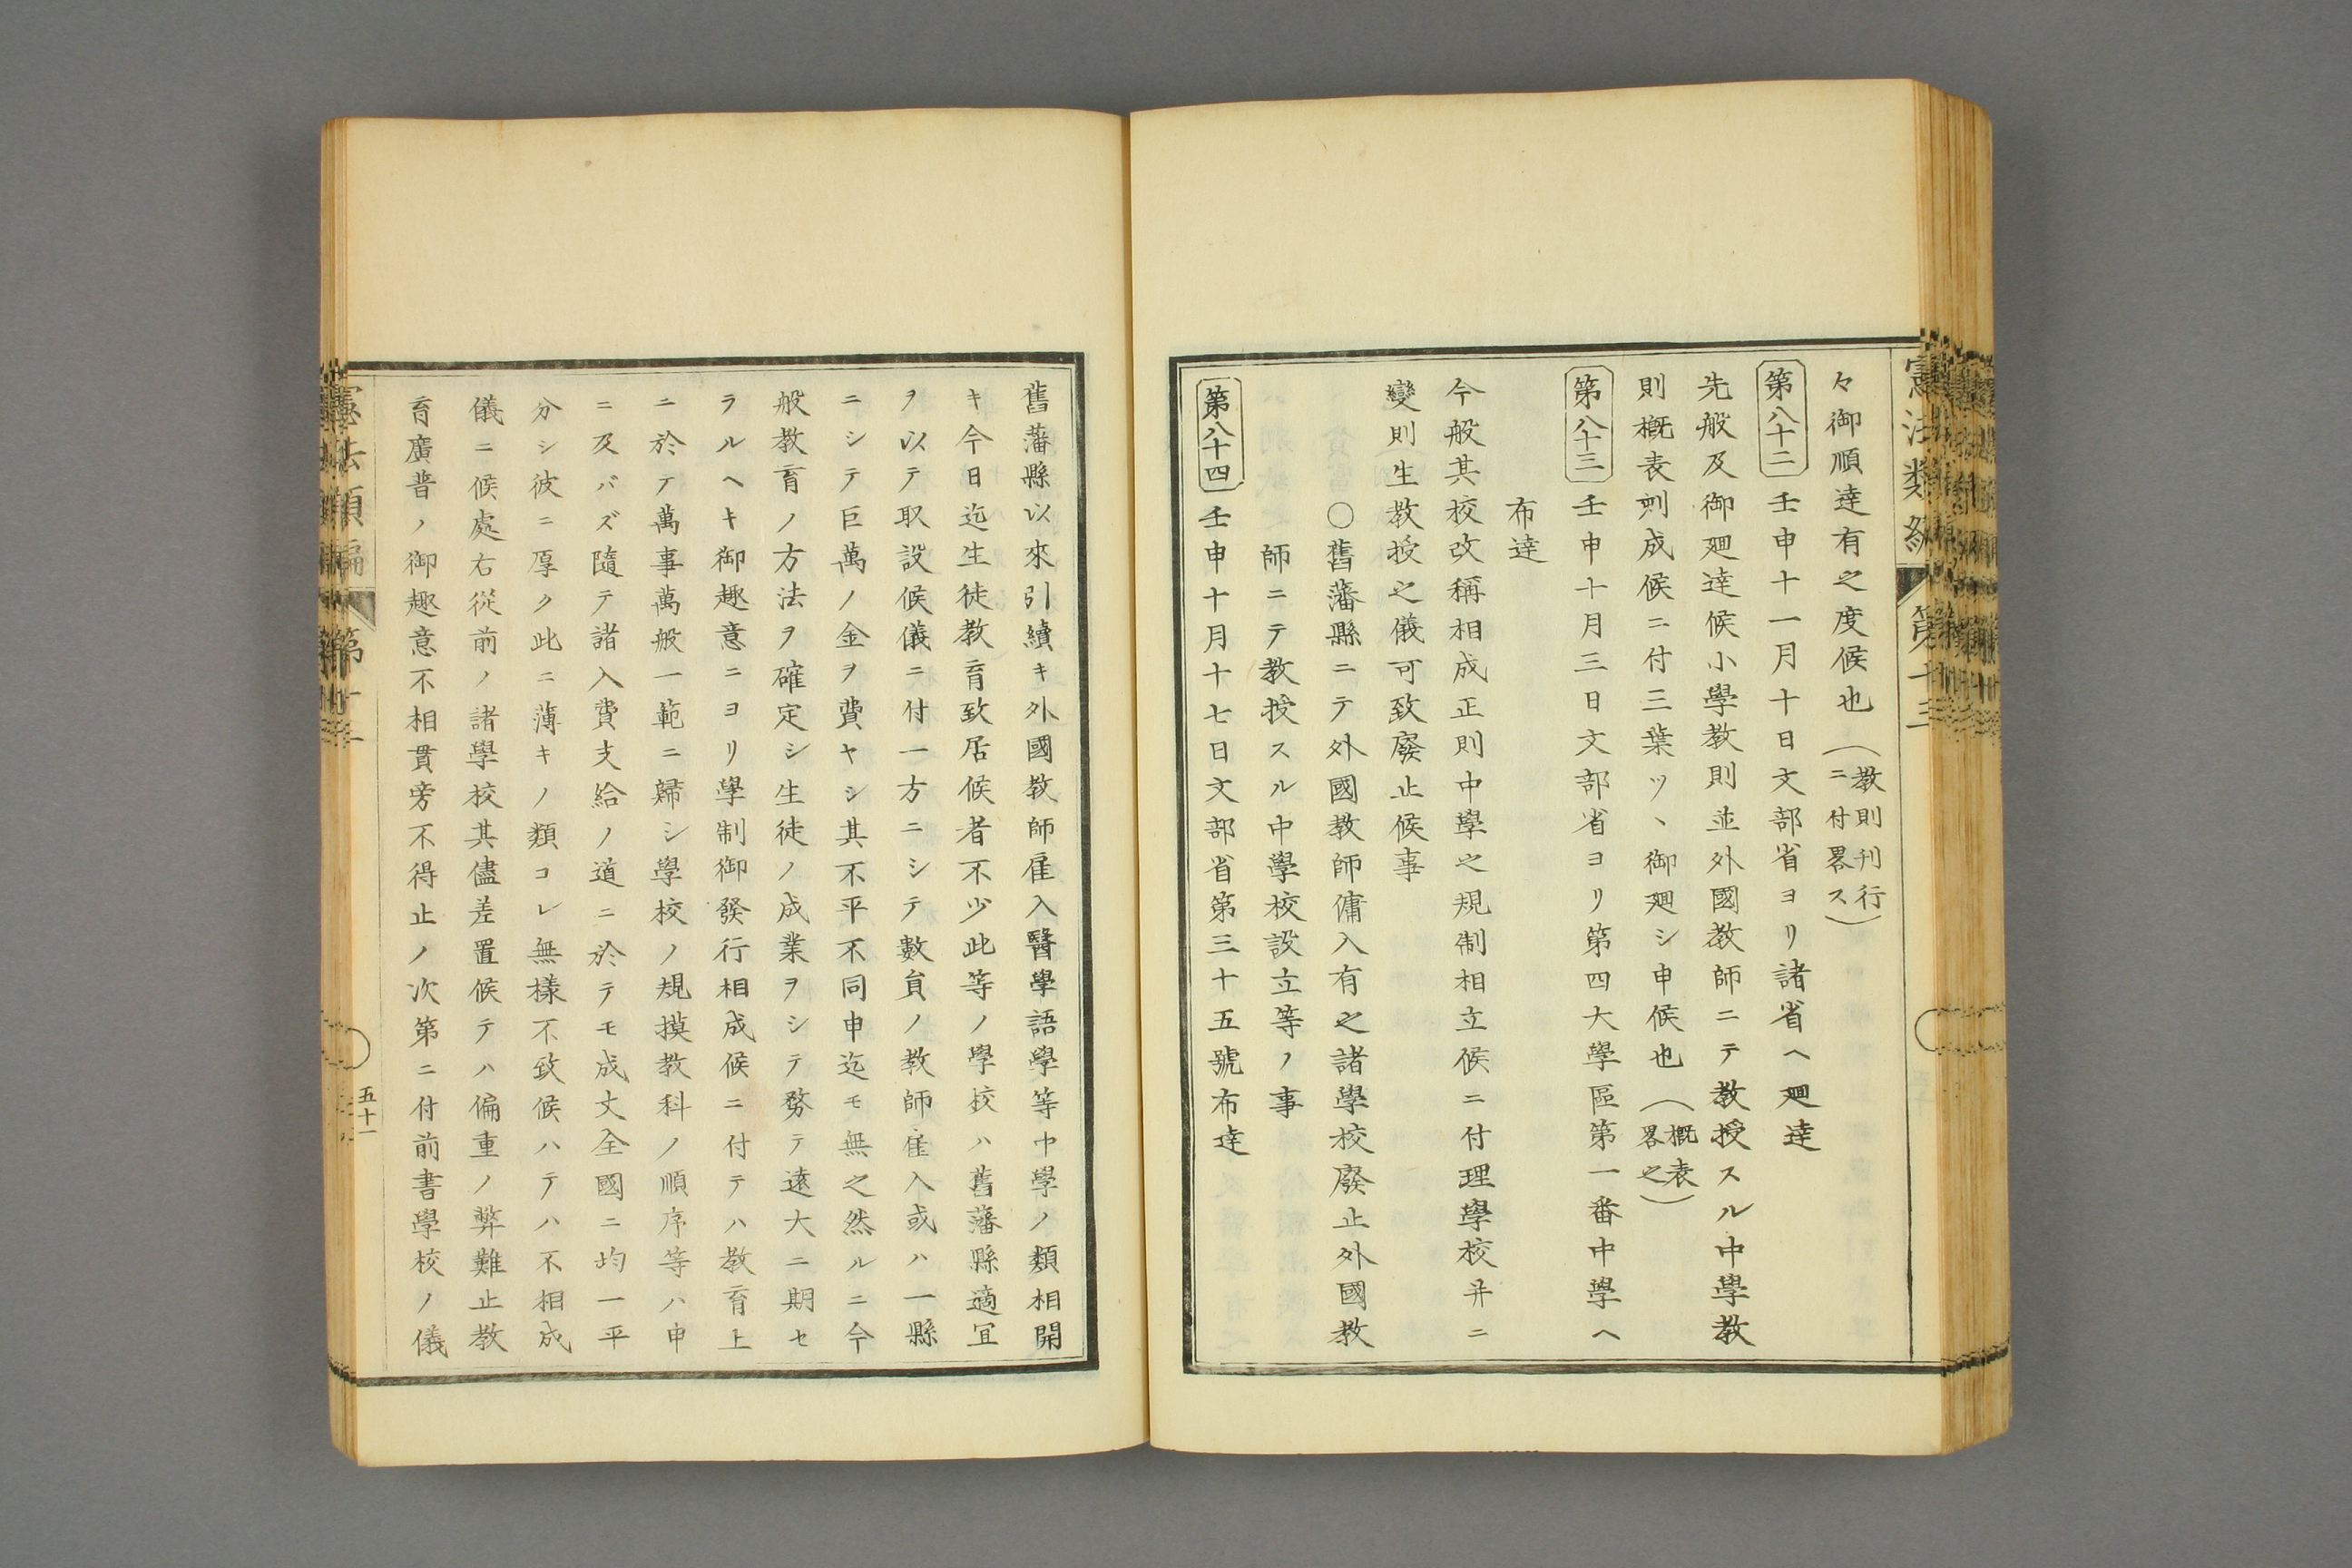 々御順達有之度候也（教則刊行ニ付畧ス）
第八十二 壬申十一月十日文部省ヨリ諸省ヘ廻達
先般及御廻達候小學教則並外國教師ニテ教授スル中學教
則概表刻成候ニ付三葉ツヽ御廻シ申候也（概表畧之）
第八十三 壬申十月三日文部省ヨリ第四大學區第一番中學ヘ
布達
今般其校改稱相成正則中學之規制相立候ニ付理學校并ニ
變則生教授之儀可致廢止候事
○舊藩縣ニテ外國教師傭入有之諸學校廢止外國教
師ニテ教授スル中學校設立等ノ事
第八十四 壬申十月十七日文部省第三十五號布達
舊藩縣以來引續キ外國教師雇入醫學語學等中學ノ類相開
キ今日迄生徒教育致居候者不少此等ノ學校ハ舊藩縣適宜
ヲ以テ取設候儀ニ付一方ニシテ數負ノ教師雇入或ハ一縣
ニシテ巨萬ノ金ヲ費ヤシ其不平不同申迄モ無之然ルニ今
般教育ノ方法ヲ確定シ生徒ノ成業ヲシテ務テ遠大ニ期セ
ラルヘキ御趣意ニヨリ學制御發行相成候ニ付テハ教育上
ニ於テ萬事萬般一範ニ歸シ學校ノ規摸教科ノ順序等ハ申
ニ及バズ隨テ諸入費支給ノ道ニ於テモ成丈全國ニ均一平
分シ彼ニ厚ク此ニ薄キノ類コレ無樣不致候ハテハ不相成
儀ニ候處右從前ノ諸學校其儘差置候テハ偏重ノ弊難止教
育廣普ノ御趣意不相貫旁不得止ノ次第ニ付前書學校ノ儀
憲法類編 第十三
五十一